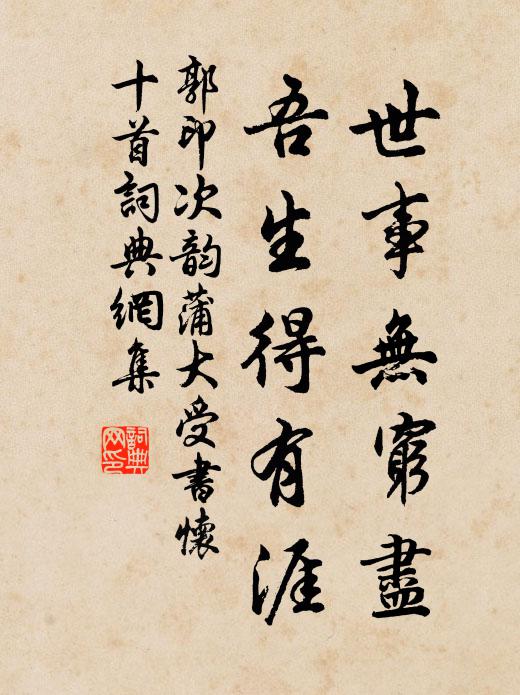 世事無窮盡
吾生得有涯
郭印次韵蒲大受書懷
十首詞典網集
詞典
网印